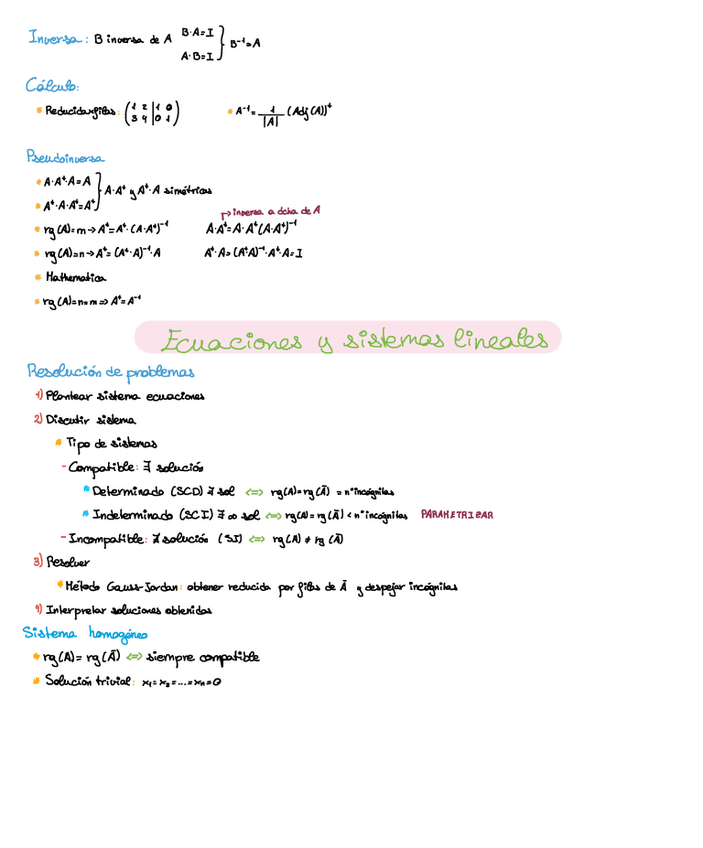 Inversa: B inversa de A B·A=I } B⁻¹=A
A·B=I
Cálculo:
• Reducida x filas: (1 2 | 1 0
3 4 | 0 1) • A⁻¹= 1/|A| (Adj(A))ᵗ
Pseudoinversa
• A·A⁺·A=A } A·A⁺ y A⁺·A simétricas
• A⁺·A·A⁺=A⁺
→ inversa a dcha de A
• rg(A)=m → A⁺=Aᵗ·(A·Aᵗ)⁻¹ A·A⁺=A·Aᵗ(A·Aᵗ)⁻¹
• rg(A)=n → A⁺=(Aᵗ·A)⁻¹·A A⁺·A=(AᵗA)⁻¹·Aᵗ·A=I
• Mathematica
• rg(A)=n=m => A⁺=A⁻¹
Ecuaciones y sistemas lineales
Resolución de problemas
1) Plantear sistema ecuaciones
2) Discutir sistema
• Tipo de sistemas
- Compatible: ∃ solución
* Determinado (SCD) ∃ sol <=> rg(A)=rg(Ā) = nº incógnitas
* Indeterminado (SCI) ∃ ∞ sol <=> rg(A)=rg(Ā) < nº incógnitas PARAMETRIZAR
- Incompatible: ∄ solución (SI) <=> rg(A) ≠ rg(Ā)
3) Resolver
• Método Gauss-Jordan: obtener reducida por filas de Ā y despejar incógnitas
4) Interpretar soluciones obtenidas
Sistema homogéneo
• rg(A)= rg(Ā) <=> siempre compatible
• Solución trivial: x₁=x₂=...=xₙ=0